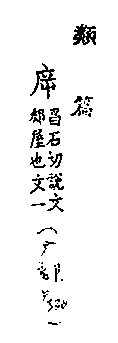 類篇
昌石切說文
郤屋也文一
(广部